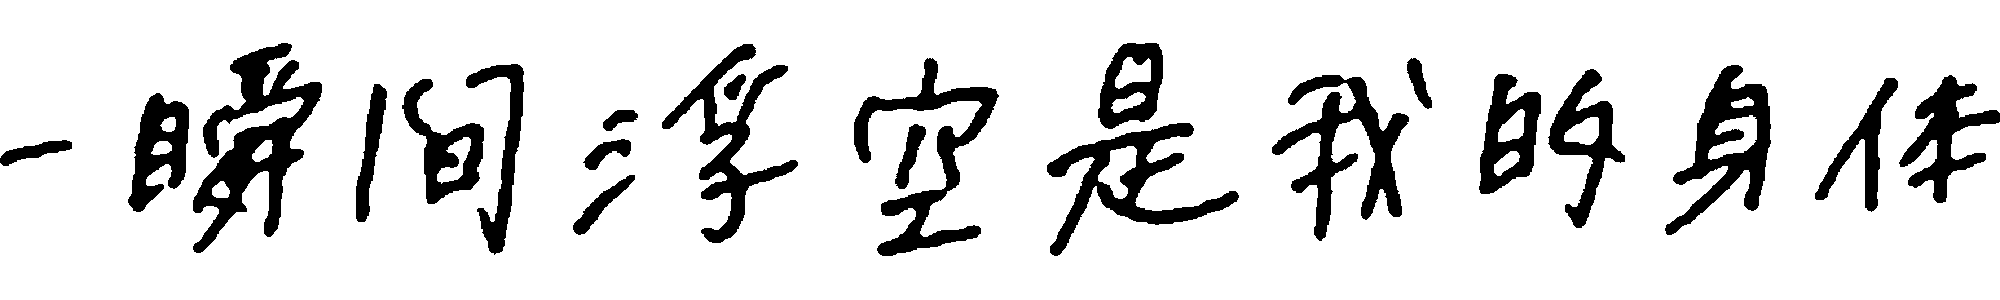 一瞬间浮空是我的身体